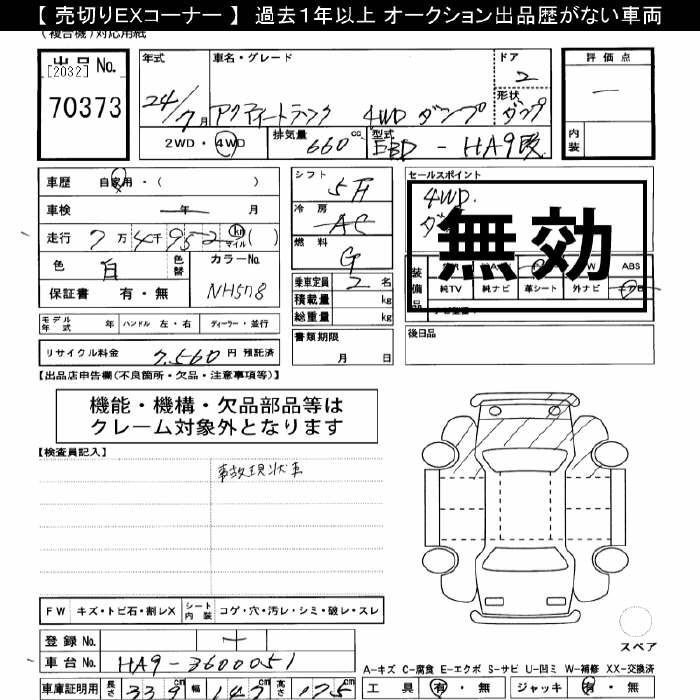 【 売切りEXコーナー 】 過去１年以上 オークション出品歴がない車両
(複合機)対応用紙
出品 No.
[2032]
70373
年式
24/7月
車名・グレード
アクティトラック 4WD ダンプ
ドア
2
形状
ダンプ
2WD・4WD
排気量
660 cc
型式
EBD - HA9改
評価点
―
内装
車歴 自家用・( )
車検 ―年 月
走行 7万4千952 km マイル ( )
色 白
色替
カラーNo.
NH578
保証書 有・無
シフト
5F
冷房
AC
燃料
G
乗車定員 2 名
積載量 kg
総重量 kg
書類期限
月 日
セールスポイント
4WD.
無効
装備品
ABS
純TV 純ナビ 革シート 外ナビ
後日品
モデル年式 年 ハンドル 左・右 ディーラー・並行
リサイクル料金 7,560 円 預託済
【出品店申告欄(不良箇所・欠品・注意事項等)】
機能・機構・欠品部品等は
クレーム対象外となります
【検査員記入】
事故現状車
FW キズ・トビ石・割レX シート内装 コゲ・穴・汚レ・シミ・破レ・スレ
登録 No.
車台 No. HA9-3600051
車庫証明用 長さ 339 cm 幅 147 cm 高さ 175 cm
スペア
A-キズ C-腐食 E-エクボ S-サビ U-凹ミ W-補修 XX-交換済
工具 有・無 ジャッキ 有・無